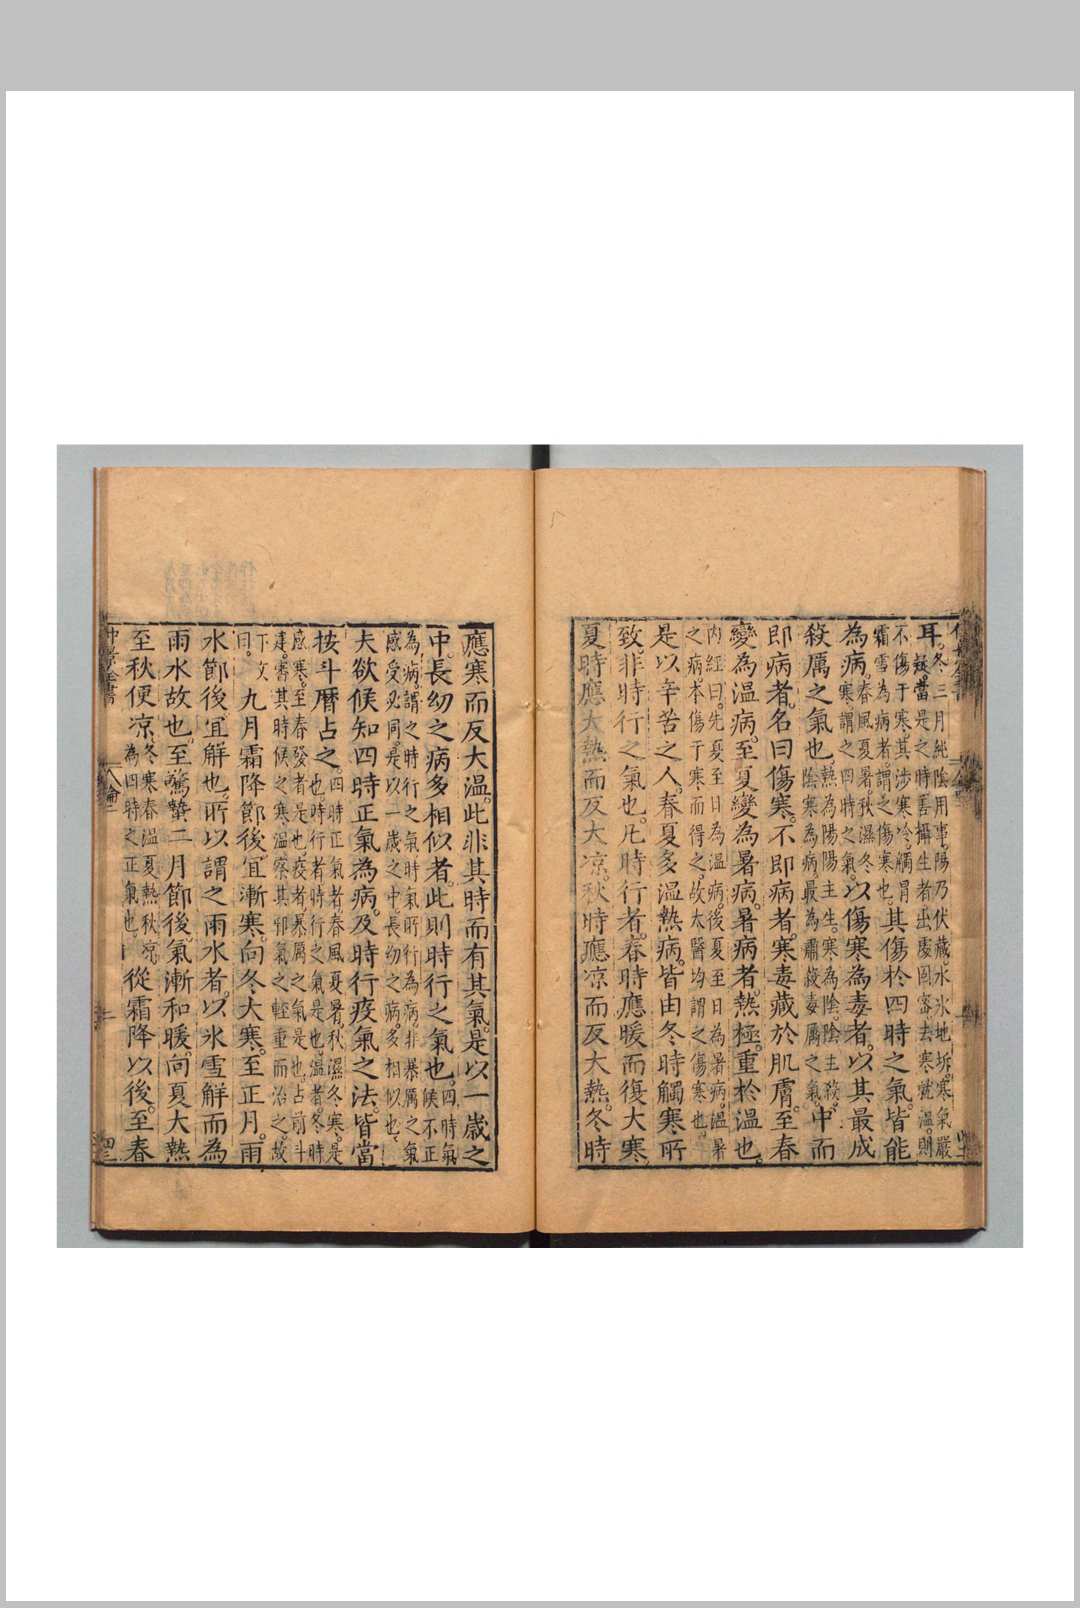 耳。冬三月純陰用事。陽乃伏藏。水氷地坼。寒氣嚴
凝。當是之時。善攝生者。出處固密。去寒就溫。則
不傷于寒。其涉寒冷。觸冒
霜雪為病者。謂之傷寒也。其傷於四時之氣。皆能
為病。春風夏暑。秋濕冬
寒。謂之四時之氣。以傷寒為毒者。以其最成
殺厲之氣也。熱為陽。陽主生。寒為陰。陰主殺。
陰寒為病。最為肅殺毒厲之氣。中而
即病者。名曰傷寒。不即病者。寒毒藏於肌膚。至春
變為溫病。至夏變為暑病。暑病者。熱極。重於溫也。
內經曰。先夏至日為溫病。後夏至日為暑病。溫暑
之病。本傷于寒而得之。故太醫均謂之傷寒也。
是以辛苦之人。春夏多溫熱病。皆由冬時觸寒所
致。非時行之氣也。凡時行者。春時應暖而復大寒。
夏時應大熱而反大凉。秋時應凉而反大熱。冬時
應寒而反大溫。此非其時而有其氣。是以一歲之
中。長幼之病多相似者。此則時行之氣也。四時氣
候不正
為病。謂之時行之氣。時氣所行為病。非暴厲之氣
感受必同。是以一歲之中。長幼之病。多相似也。
夫欲候知四時正氣為病。及時行疫氣之法。皆當
按斗曆占之。四時正氣者。春風夏暑。秋濕冬寒。是
也。時行者。時行之氣是也。溫者。冬時
感寒。至春發者是也。疫者。暴厲之氣是也。占前斗
建。審其時候之寒溫。察其邪氣之輕重而治之。故
下文
曰。九月霜降節後宜漸寒。向冬大寒。至正月。雨
水節後宜解也。所以謂之雨水者。以氷雪解而為
雨水故也。至驚蟄二月節後。氣漸和暖。向夏大熱
至秋便凉。冬寒春溫。夏熱秋凉。
為四時之正氣也。從霜降以後。至春
仲景全書